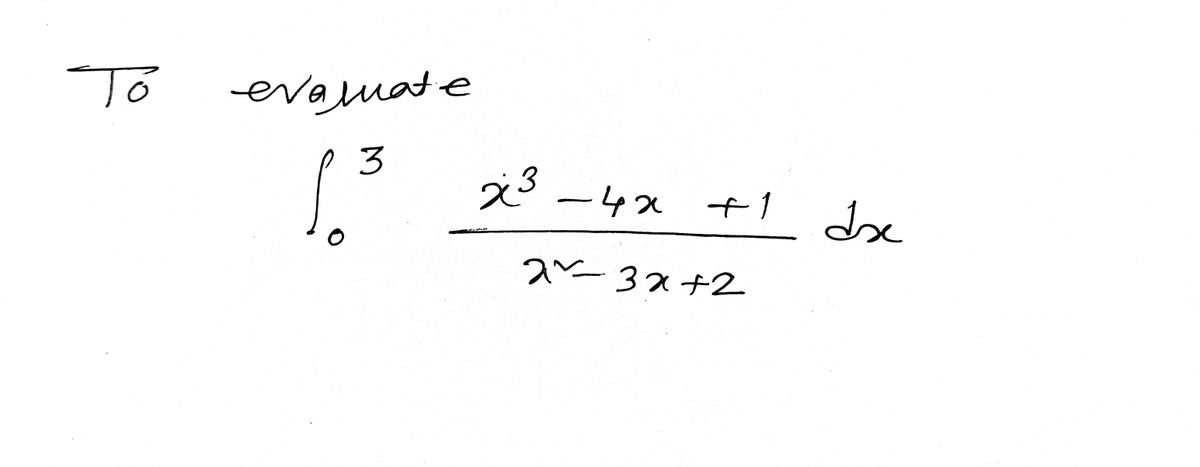 To evaluate
∫₀³ (x³ - 4x + 1) / (x² - 3x + 2) dx